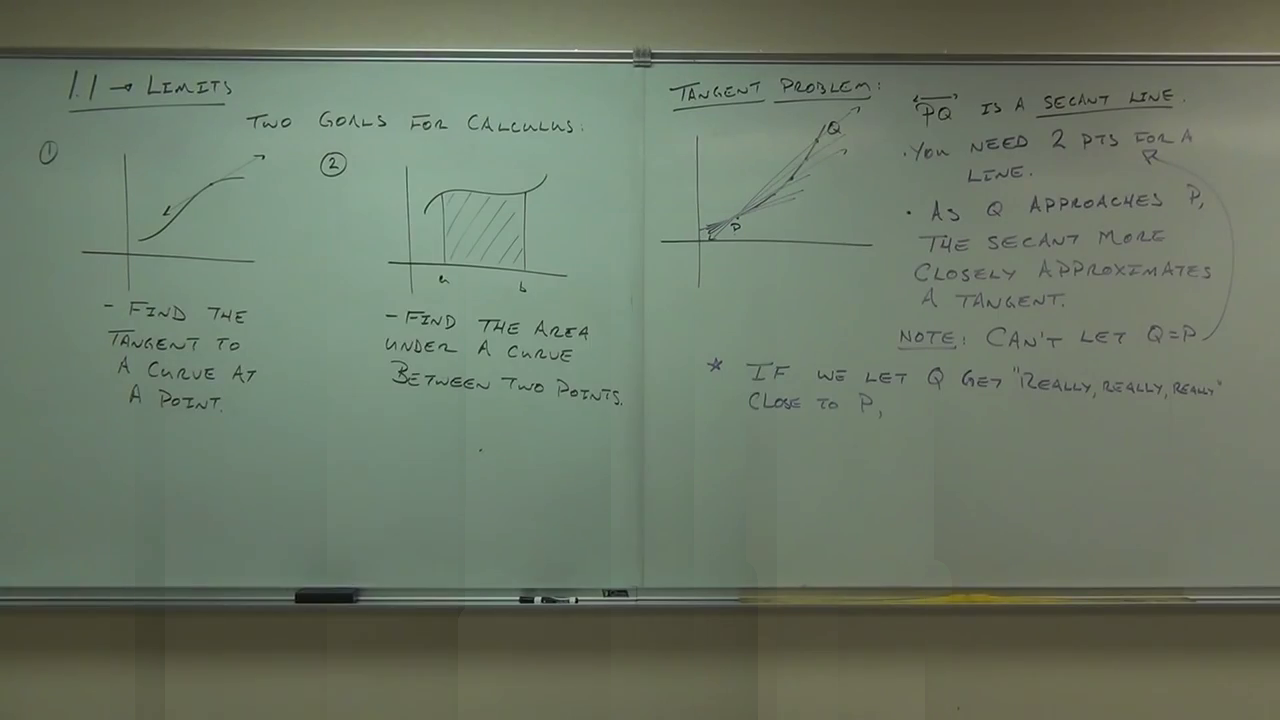 1.1 → LIMITS
TWO GOALS FOR CALCULUS:
①
- FIND THE
TANGENT TO
A CURVE AT
A POINT.
②
a b
- FIND THE AREA
UNDER A CURVE
BETWEEN TWO POINTS.
TANGENT PROBLEM:
Q
P
PQ IS A SECANT LINE.
• YOU NEED 2 PTS FOR A
LINE.
• AS Q APPROACHES P,
THE SECANT MORE
CLOSELY APPROXIMATES
A TANGENT.
NOTE: CAN'T LET Q=P
* IF WE LET Q GET "REALLY, REALLY, REALLY"
CLOSE TO P,